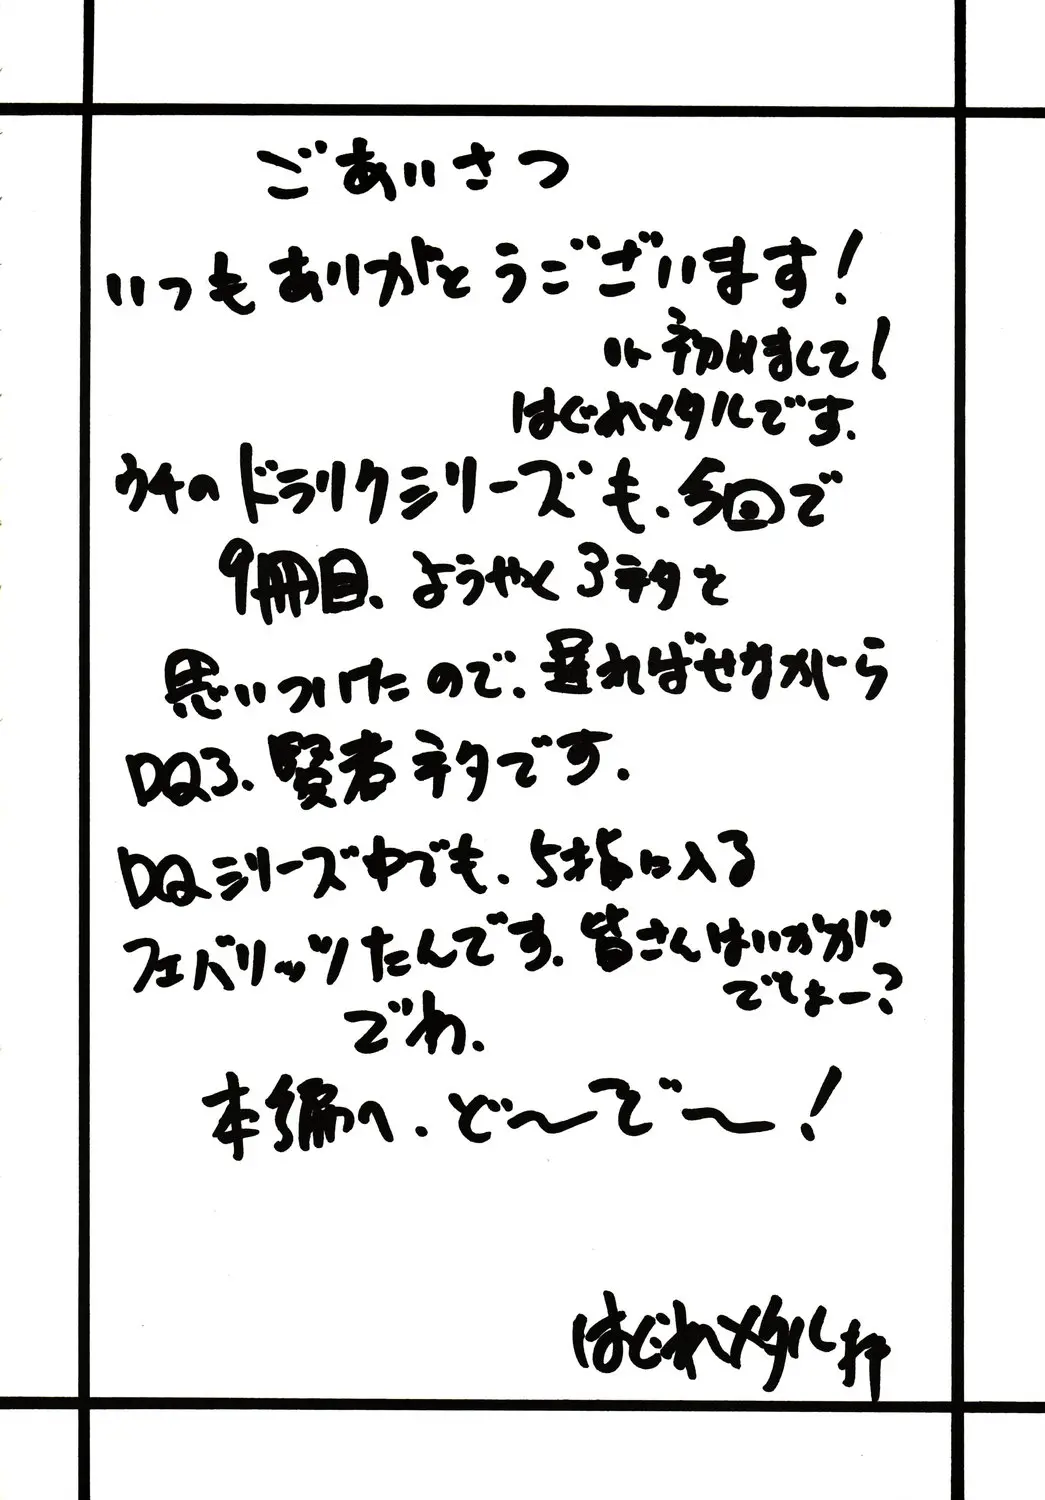 ごあいさつ
いつもありがとうございます!
初めまして!
はぐれメタルです.
ウチのドラクシリーズも、今回で
9冊目、ようやく3ネタを
思いついたので、遅ればせながら
DQ3、賢者ネタです.
DQシリーズ中でも、5指に入る
フェバリッツたんです.皆さんはいかが
でしょー?
でわ、
本編へ、ど〜ぞ〜!
はぐれメタル拝